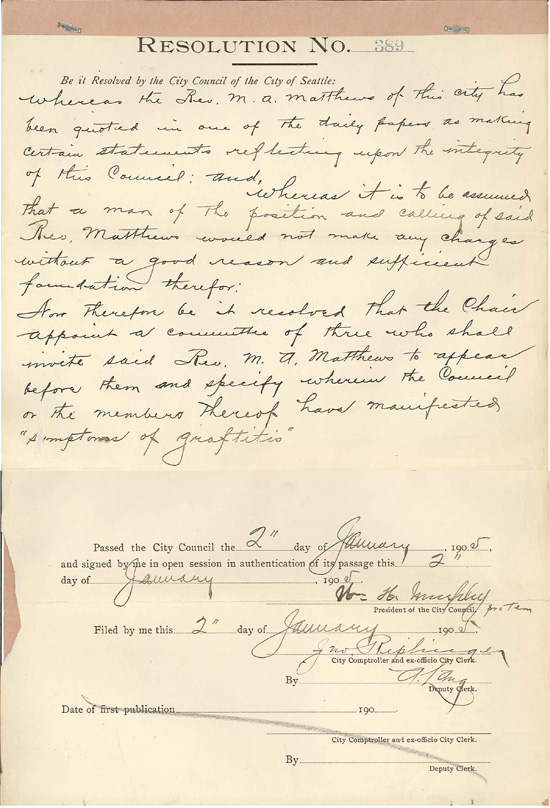 RESOLUTION NO. 389
Be it Resolved by the City Council of the City of Seattle:
Whereas the Rev. M. A. Matthews of this city has
been quoted in one of the daily papers as making
certain statements reflecting upon the integrity
of this Council: and,
Whereas it is to be assumed
that a man of the position and calling of said
Rev. Matthews would not make any charges
without a good reason and sufficient
foundation therefor:
Now therefore be it resolved that the Chair
appoint a committee of three who shall
invite said Rev. M. A. Matthews to appear
before them and specify wherein the Council
or the members thereof have manifested
"symptoms of graftitis"
Passed the City Council the 2" day of January, 1905,
and signed by me in open session in authentication of its passage this 2"
day of January, 1905.
Wm H. Murphy
President of the City Council, pro tem
Filed by me this 2" day of January 1905.
Jno. Riplinger
City Comptroller and ex-officio City Clerk.
By
Deputy Clerk.
Date of first publication 190
City Comptroller and ex-officio City Clerk.
By
Deputy Clerk.